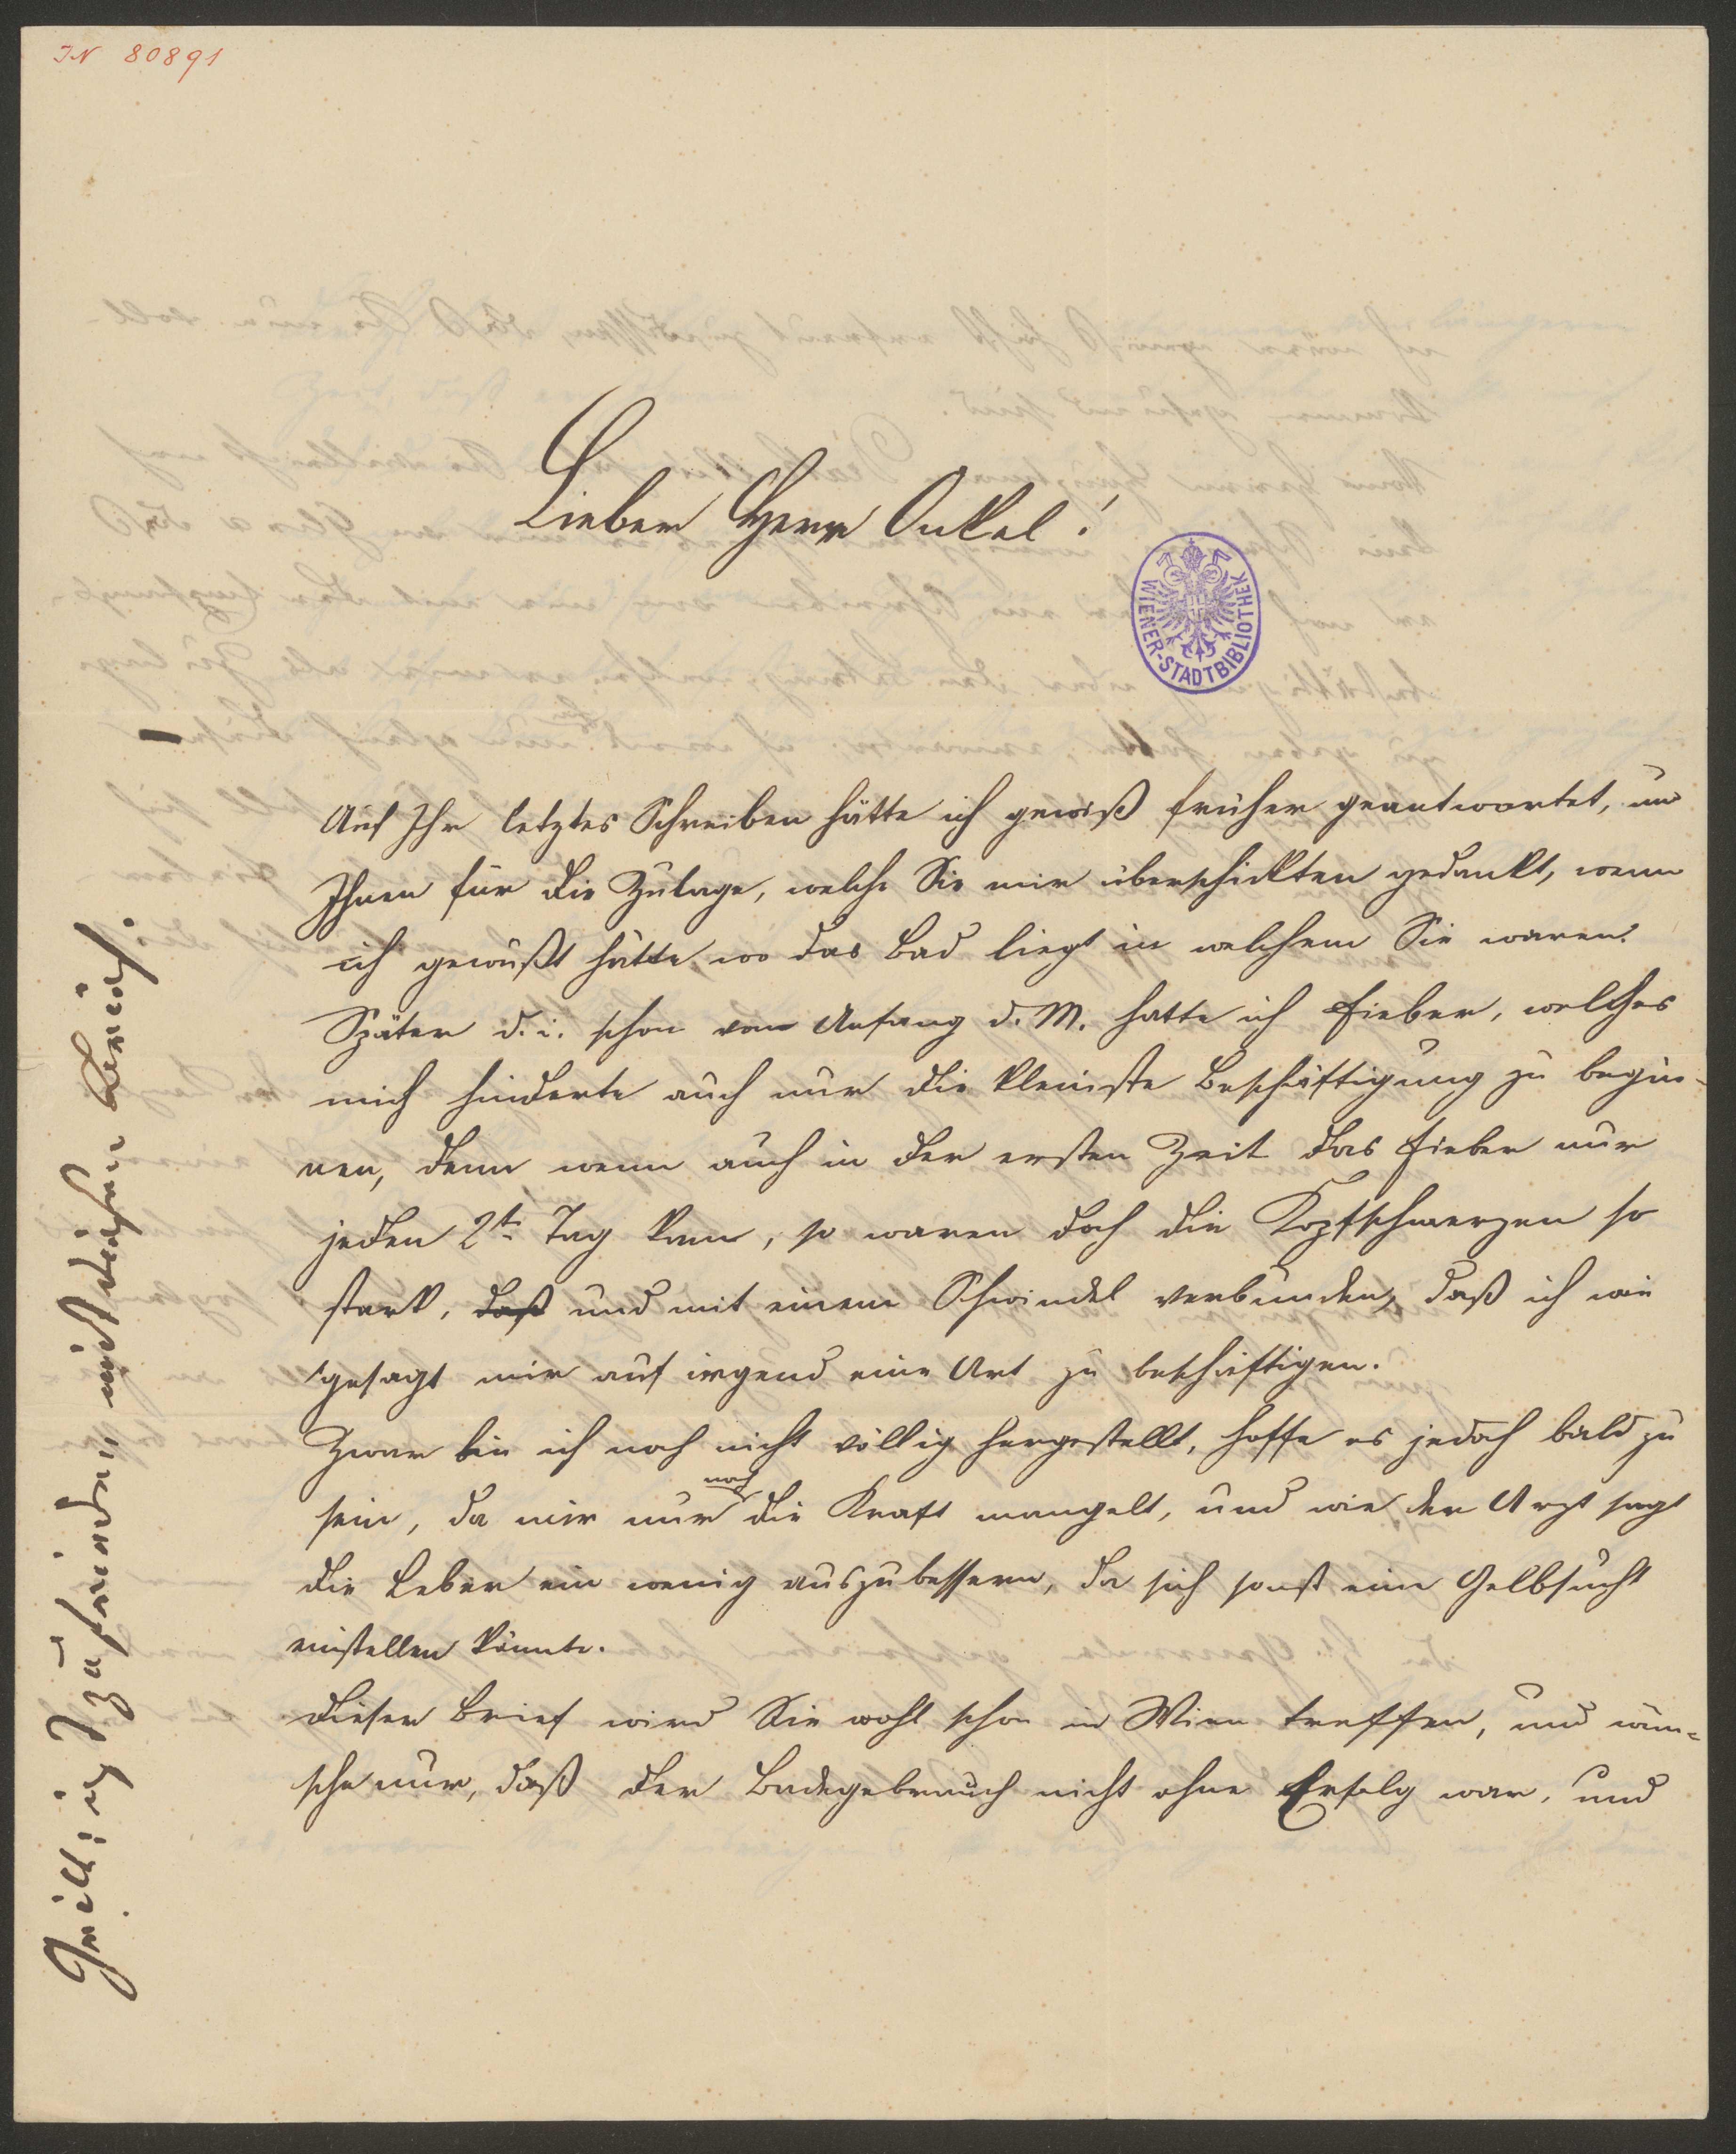 IN 80891
Lieber Herr Onkel!
WIENER-STADTBIBLIOTHEK
Auf Ihr letztes Schreiben hätte ich gewiß früher geantwortet, und
Ihnen für die Zulage, welche Sie mir überschickten gedankt, wenn
ich gewußt hätte, wo das Bad liegt in welchem Sie waren.
Später d. i. schon vom Anfang d. M. hatte ich Fieber, welches
mich hinderte auch nur die kleinste Beschäftigung zu begin-
nen, denn wenn auch in der ersten Zeit das Fieber nur
jeden 2t. Tag kam, so waren doch die Kopfschmerzen so
stark, daß und mit einem Schwindel verbunden, daß ich wie
gesagt mir auf irgend eine Art zu beschäftigen.
Zwar bin ich noch nicht völlig hergestellt, hoffe es jedoch bald zu
sein, da mir nur noch die Kraft mangelt, und wie der Arzt sagt
die Leber ein wenig auszubessern, da sich sonst eine Gelbsucht
einstellen könnte.
Dieser Brief wird Sie wohl schon in Wien treffen, und wün-
sche nur, daß der Badegebrauch nicht ohne Erfolg war, und
nicht